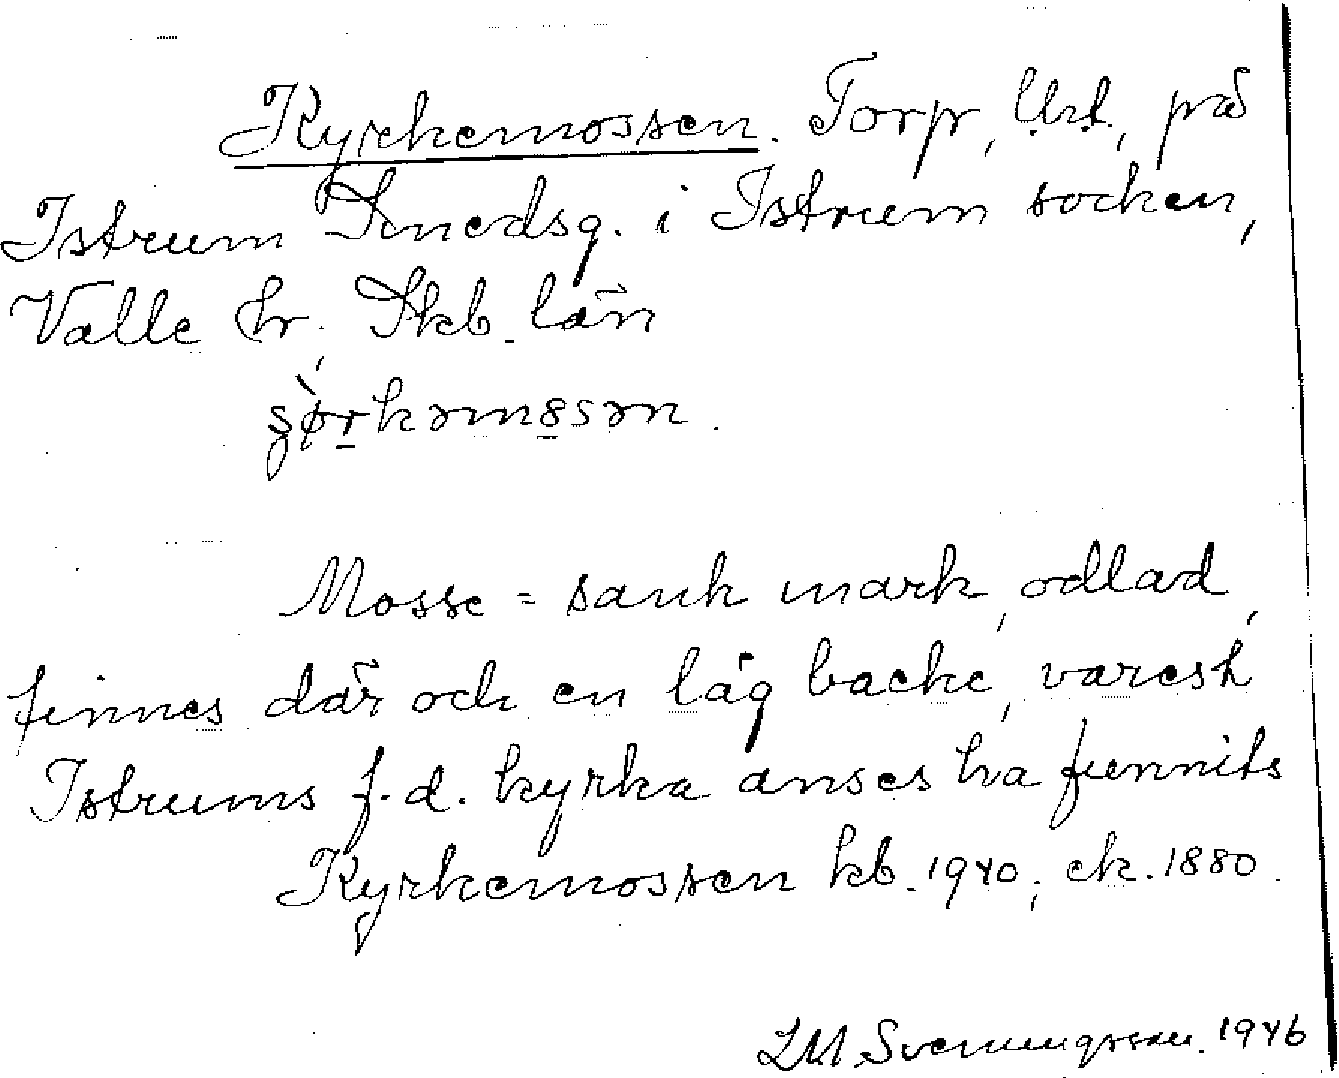 Kyrkemossen. Torp, Urt., på
Istrum Smedsg. i Istrum socken,
Valle hr, Skb. län
Mosse = sank mark, odlad,
finnes där och en låg backe, varest
Istrums f.d. kyrka anses ha funnits
Kyrkemossen kb. 1940; ek. 1880.
LM. Svenungsson. 1946